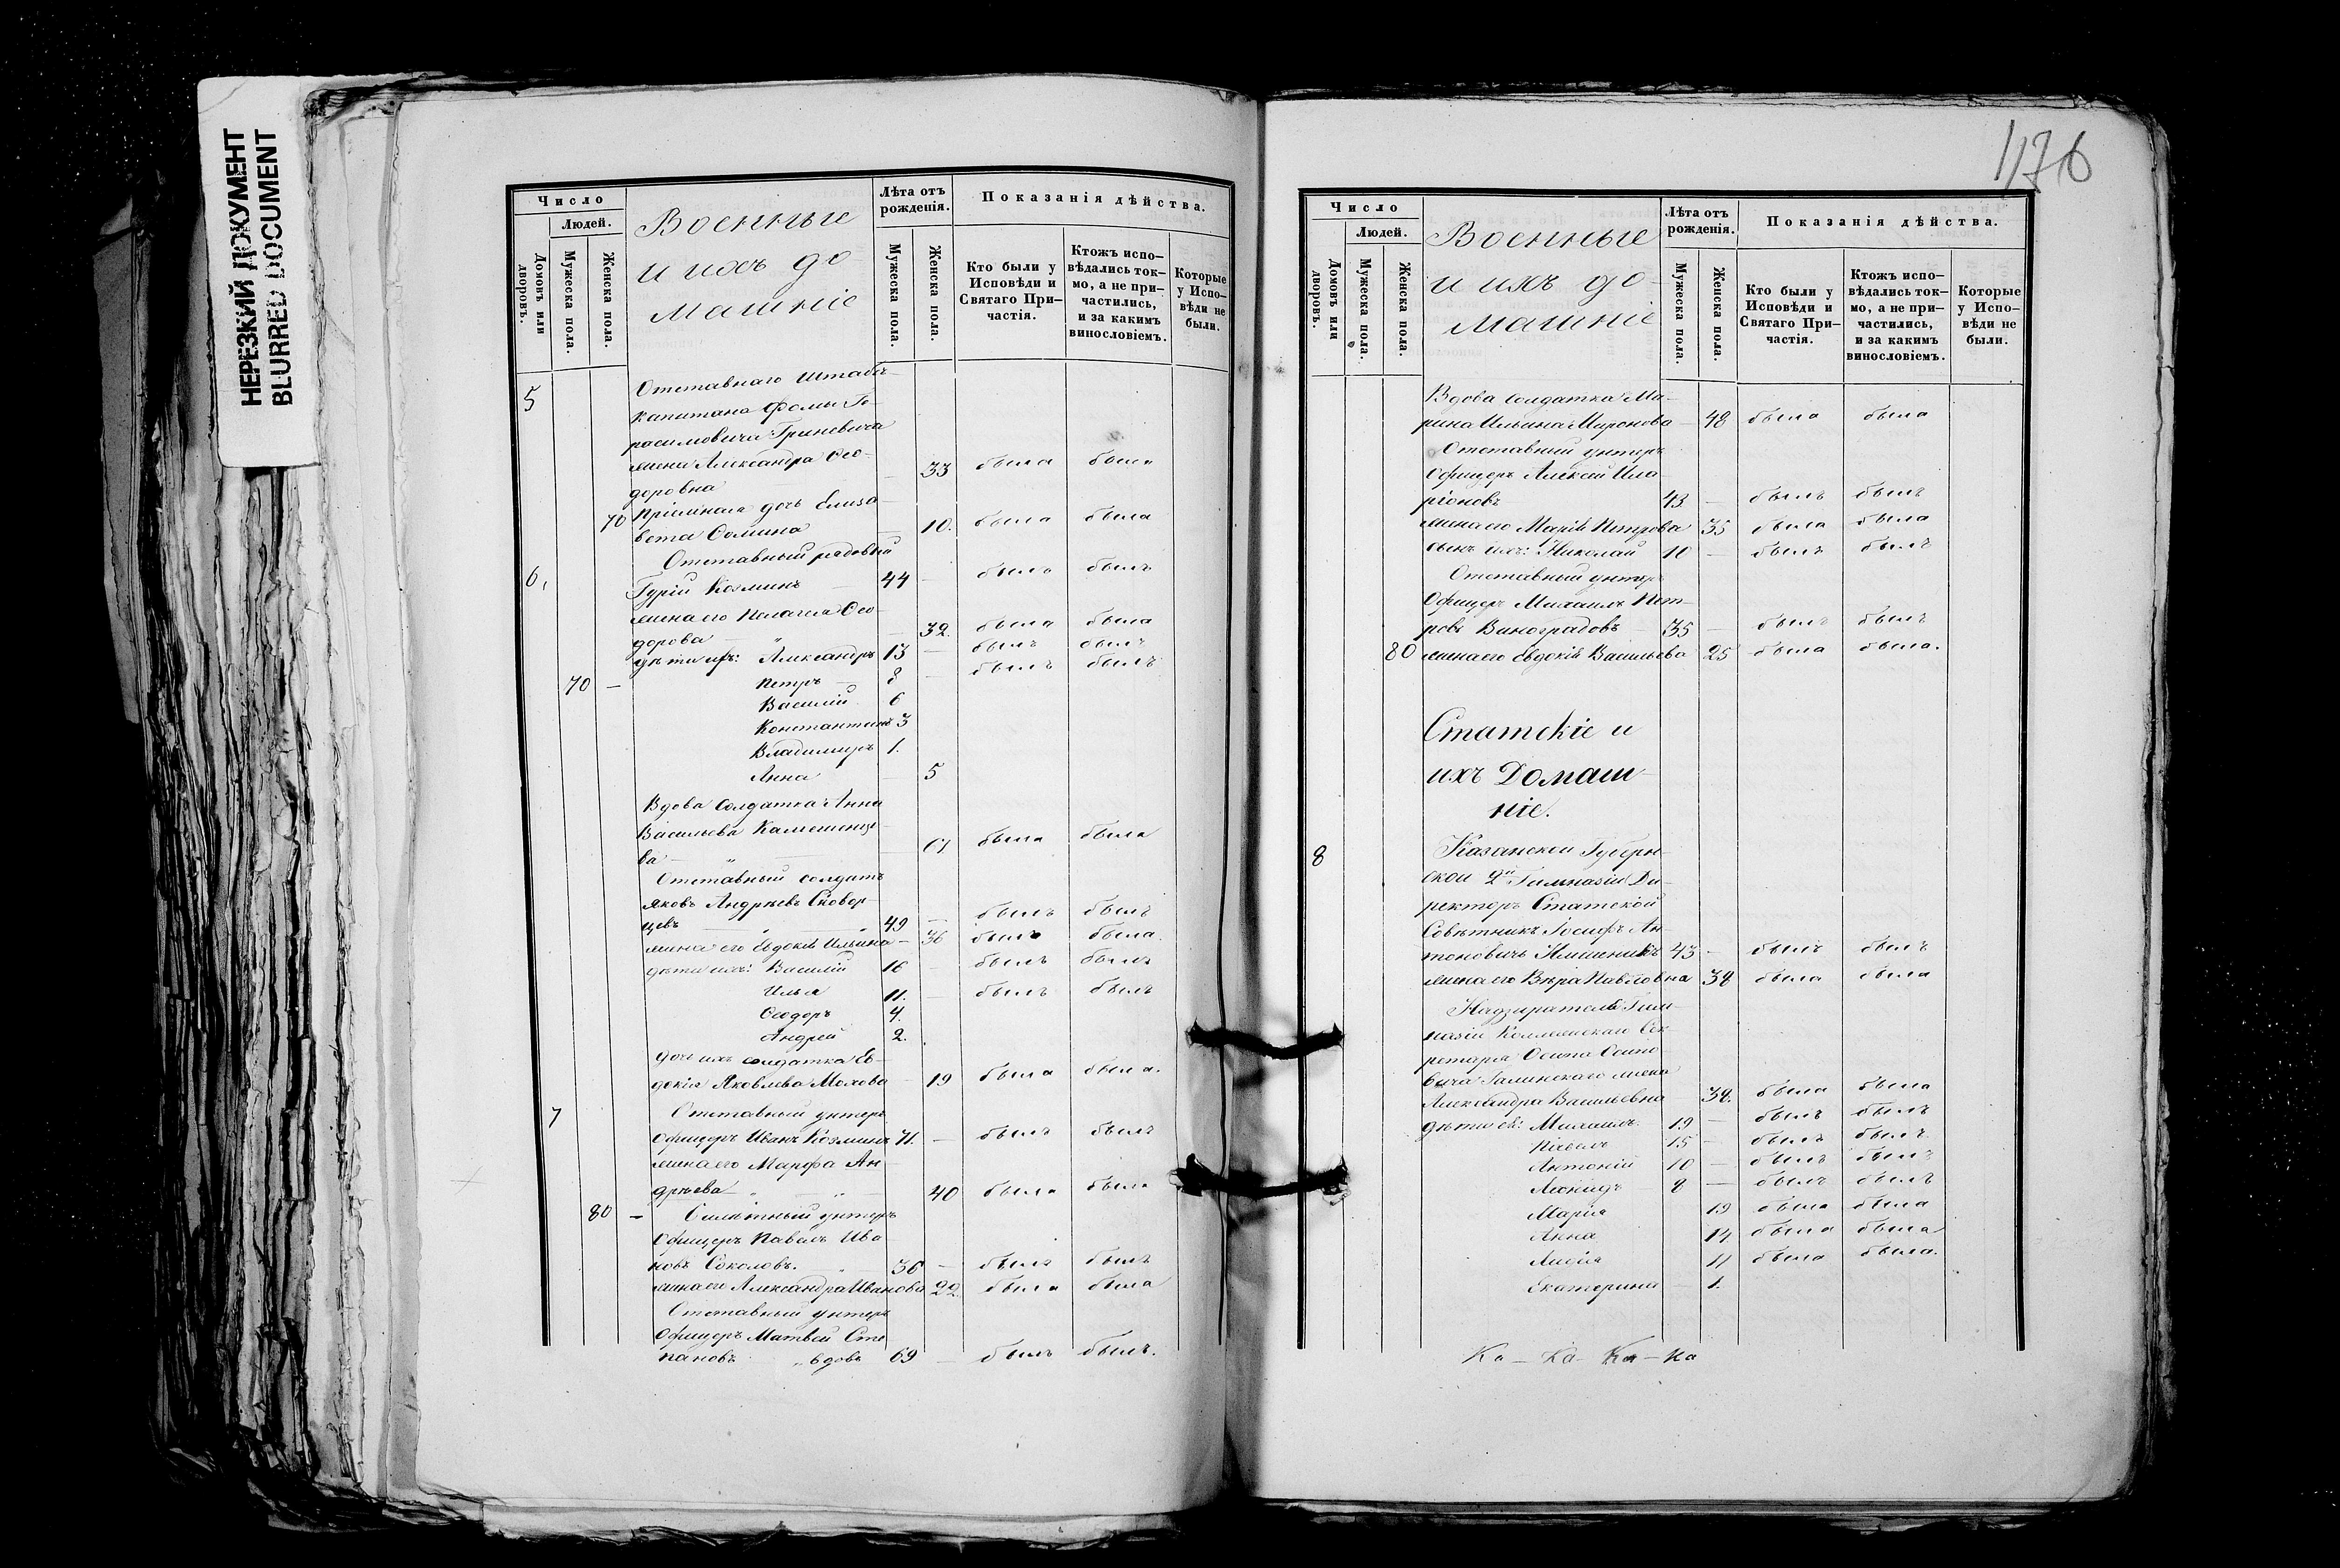 НЕРЕЗКИЙ ДОКУМЕНТ
BLURRED DOCUMENT
Число
Людей.
Домовъ или дворовъ.
Мужеска пола.
Женска пола.
Военные
и ихъ до-
машніе
Лѣта отъ рожденія.
Мужеска пола.
Женска пола.
Показанія дѣйства.
Кто были у Исповѣди и Святаго При-частія.
Ктожъ испо-вѣдались ток-мо, а не при-частились, и за какимъ винословіемъ.
Которые у Испо-вѣди не были.
5 Отставнаго Штабсъ-
капитана Фомы Ге-
расимовича Гриневича
жена Александра Ѳео-
доровна 33 была была
70 Пріемная дочь Елиза
вета Ѳомина 10. была была
Отставный рядовый
6, Гурій Козминъ 44 – былъ былъ
жена его Пелагея Ѳео-
дорова 32. была была
дѣти ихъ: Александръ 13 – былъ былъ
70 – Петръ – 8 – былъ былъ
Василій 6
Константинъ 3
Владимиръ 1.
Анна 5
Вдова солдатка Анна
Васильева
ва – была была
Отставный солдатъ
Яковъ Андрѣевъ Сковор-
цевъ 49 – былъ былъ
жена его Евдокія Ильина – 36 была была.
дѣти ихъ: Василій 16 – былъ былъ
Илья 11. – былъ былъ
Ѳеодоръ 4.
Андрей 2.
дочь ихъ солдатка Ев-
докія Яковлева Мохова – 19 была была.
7 Отставный унтеръ
офицеръ Иванъ Козминъ 71. – былъ былъ
жена его Марфа Ан-
дрѣева 40 была была
80 – унтеръ
Офицеръ Павелъ Ива
новъ Соколовъ. 36 – былъ былъ
жена его Александра Иванова 22. была была
Отставный унтеръ
Офицеръ Матвѣй Сте
пановъ „вдовъ 69 – былъ былъ.
1176
Число
Людей.
Домовъ или дворовъ.
Мужеска пола.
Женска пола.
Военные
и ихъ до-
машніе
Лѣта отъ рожденія.
Мужеска пола.
Женска пола.
Показанія дѣйства.
Кто были у Исповѣди и Святаго При-частія.
Ктожъ испо-вѣдались ток-мо, а не при-частились, и за какимъ винословіемъ.
Которые у Испо-вѣди не были.
Вдова солдатка Ма-
рина Ильина Миронова – 48 была была
Отставный унтеръ
Офицеръ Алексѣй Ила
ріоновъ 43 – былъ былъ
жена его Марія Петрова 35 была была
сынъ ихъ: Николай 10 – былъ былъ
Отставный унтеръ
Офицеръ Михаилъ Пет-
ровъ Виноградовъ 35 – былъ былъ
80 жена его Евдокія Васильева 25 была была.
Статскіе и
ихъ Домаш-
ніе.
8 Казанской Губерн-
ской 2й Гимназіи Ди-
ректоръ Статской
Совѣтникъ Іосифъ Ан-
тоновичъ 43 – былъ былъ
жена его Вѣра Павловна 38 была была
Надзирателя Гим-
назіи Коллежскаго Сек-
ретаря Осипа Осипо-
вича Галинскаго жена
Александра Васильевна – 38. была была
дѣти ея: Михаилъ 19 – былъ былъ
Павелъ 15 – былъ былъ
Антоній 10 – былъ былъ
Леонидъ 8 – былъ былъ
Марія 19 была была
Анна 14 была была
Лидія 11 была была.
Екатерина – 1.
Ка – Ка – Ка – Ка